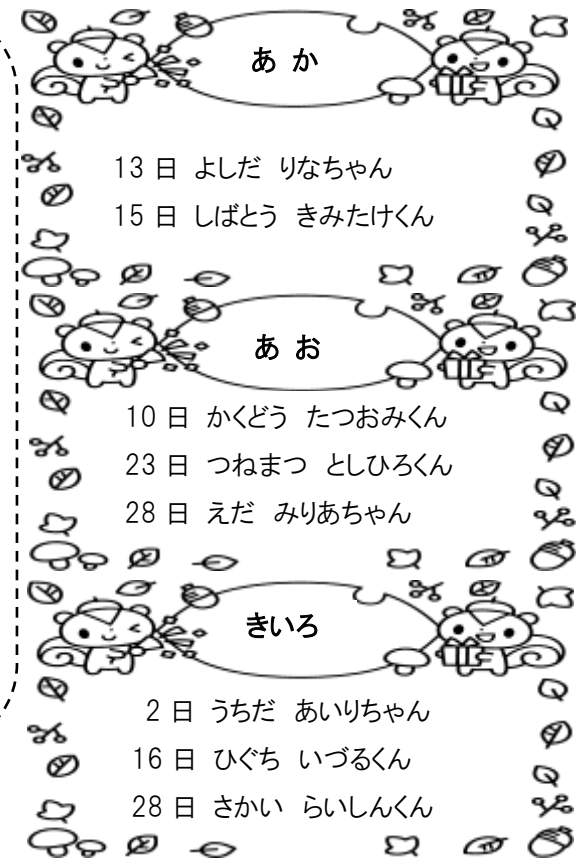 あ か
13 日 よしだ りなちゃん
15 日 しばとう きみたけくん
あ お
10 日 かくどう たつおみくん
23 日 つねまつ としひろくん
28 日 えだ みりあちゃん
きいろ
2 日 うちだ あいりちゃん
16 日 ひぐち いづるくん
28 日 さかい らいしんくん